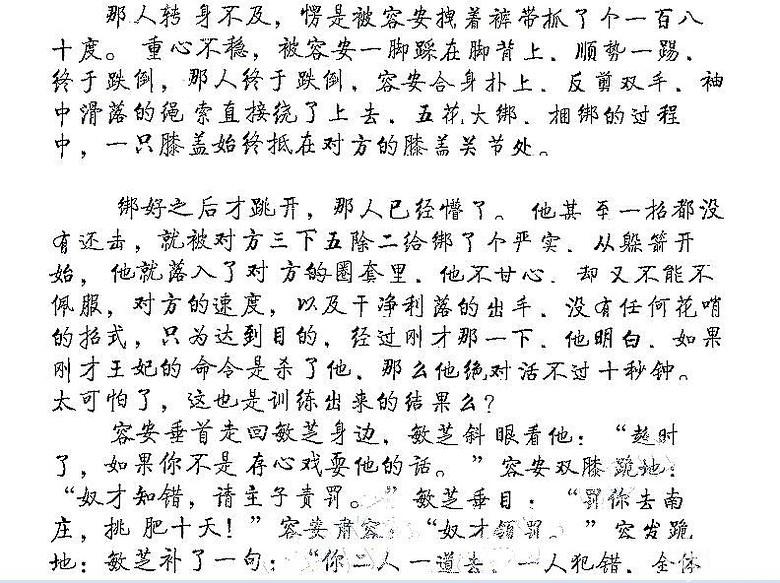 那人转身不及，愣是被容安拽着裤带抓了个一百八
十度。重心不稳，被容安一脚踩在脚背上、顺势一踢、
终于跌倒，那人终于跌倒、容安合身扑上、反剪双手、袖
中滑落的绳索直接绕了上去、五花大绑、捆绑的过程
中，一只膝盖始终抵在对方的膝盖关节处。
绑好之后才跳开，那人已经懵了。他甚至一招都没
有还击，就被对方三下五除二给绑了个严实、从躲箭开
始，他就落入了对方的圈套里、他不甘心、却又不能不
佩服，对方的速度，以及干净利落的出手、没有任何花哨
的招式，只为达到目的，经过刚才那一下、他明白、如果
刚才王妃的命令是杀了他、那么他绝对活不过十秒钟。
太可怕了，这也是训练出来的结果么？
容安垂首走回敏芝身边，敏芝斜眼看他：“超时
了，如果你不是存心戏耍他的话。”容安双膝跪地：
“奴才知错，请主子责罚。”敏芝垂目：“罚你去南
庄，挑肥十天！”容安肃容：“奴才领罚。”容发跪
地：敏芝补了一句：“你二人一道去、一人犯错、全体